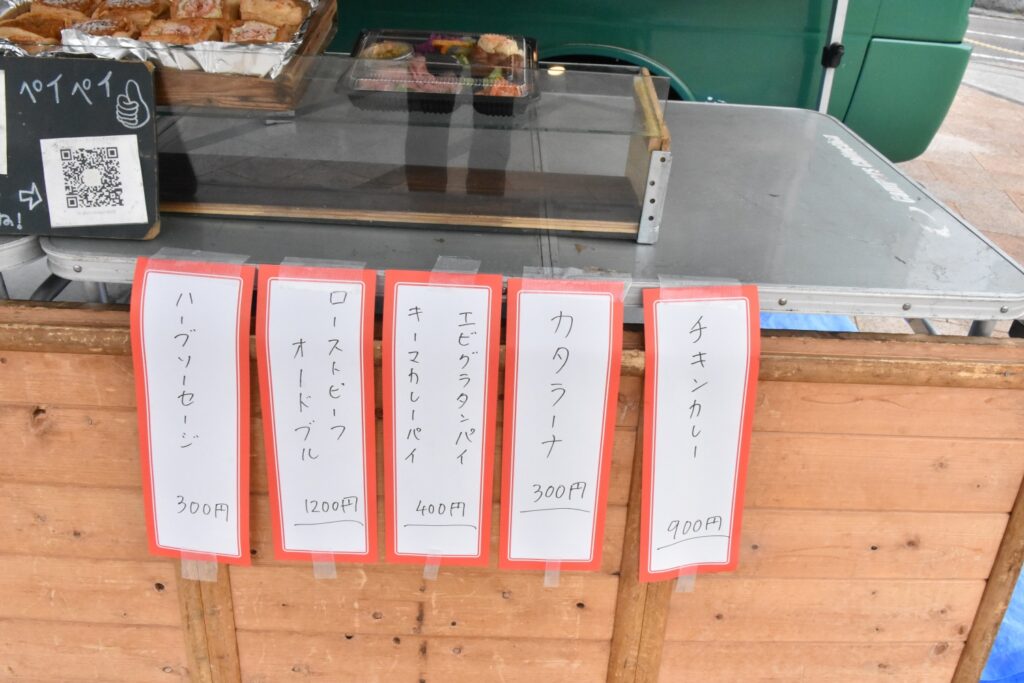 ペイペイ
ハーブソーセージ
300円
ローストビーフ
オードブル
1200円
エビグラタンパイ
キーマカレーパイ
400円
カタラーナ
300円
チキンカレー
900円